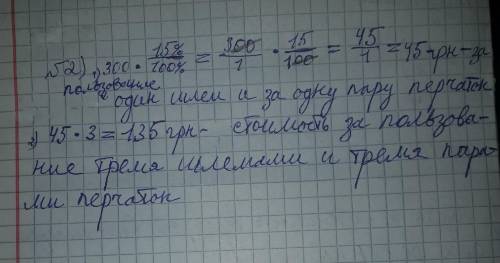 №2) 1) 300 · 15%/100% = 300/1 · 15/100 = 45/1 = 45 грн - за
пользование
один шлем и за одну пару перчаток
2) 45 · 3 = 135 грн - стоимость за пользова-
ние тремя шлемами и тремя пара-
ми перчаток